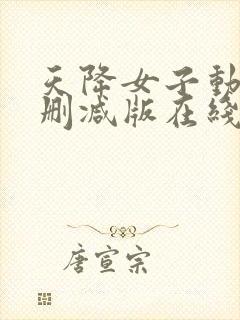 天降女子動
删减版在綫
唐宣宗